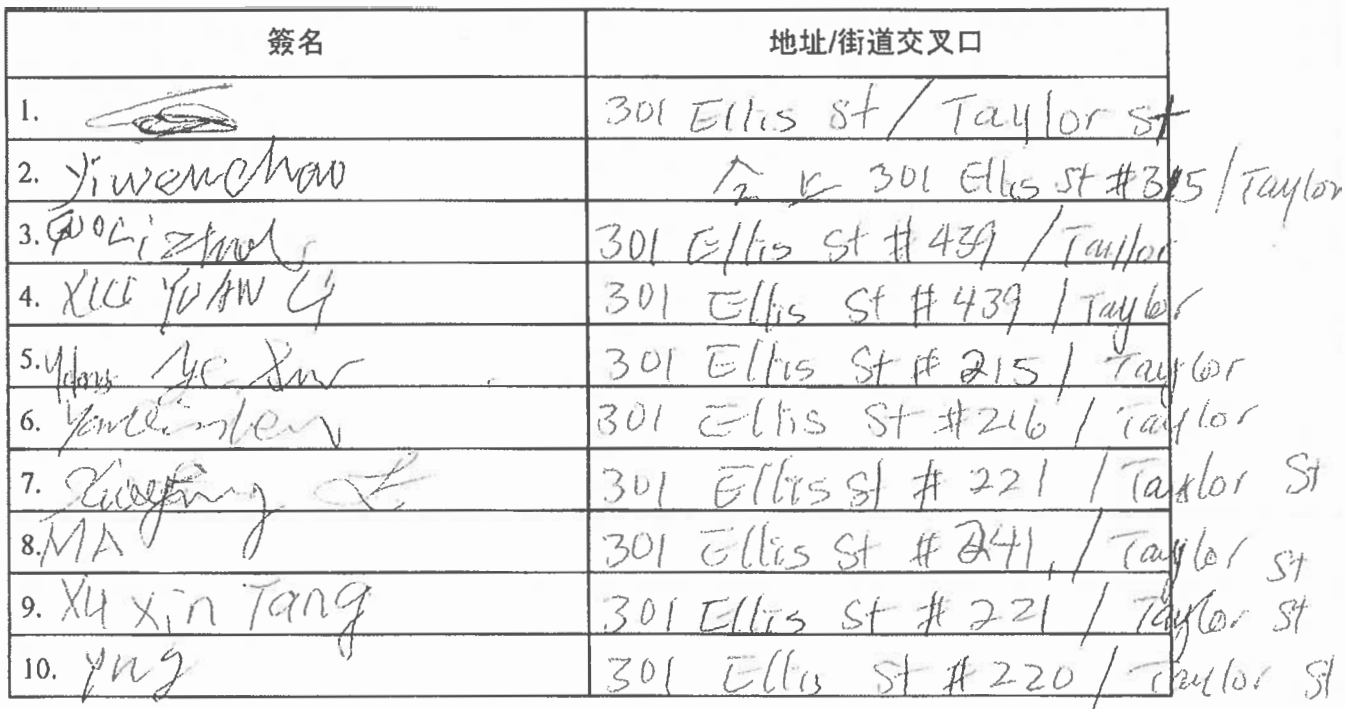 簽名 地址/街道交叉口
1. 301 Ellis St / Taylor St
2. Yiwen Chao 301 Ellis St #315 / Taylor
3. 301 Ellis St # 439 / Taylor
4. XIU YUAN LI 301 Ellis St # 439 / Taylor
5. 301 Ellis St # 215 / Taylor
6. 301 Ellis St # 216 / Taylor
7. 301 Ellis St # 221 / Taylor St
8. MA 301 Ellis St # 241, / Taylor St
9. Xu Xin Tang 301 Ellis St # 221 / Taylor St
10. 301 Ellis St # 220 / Taylor St